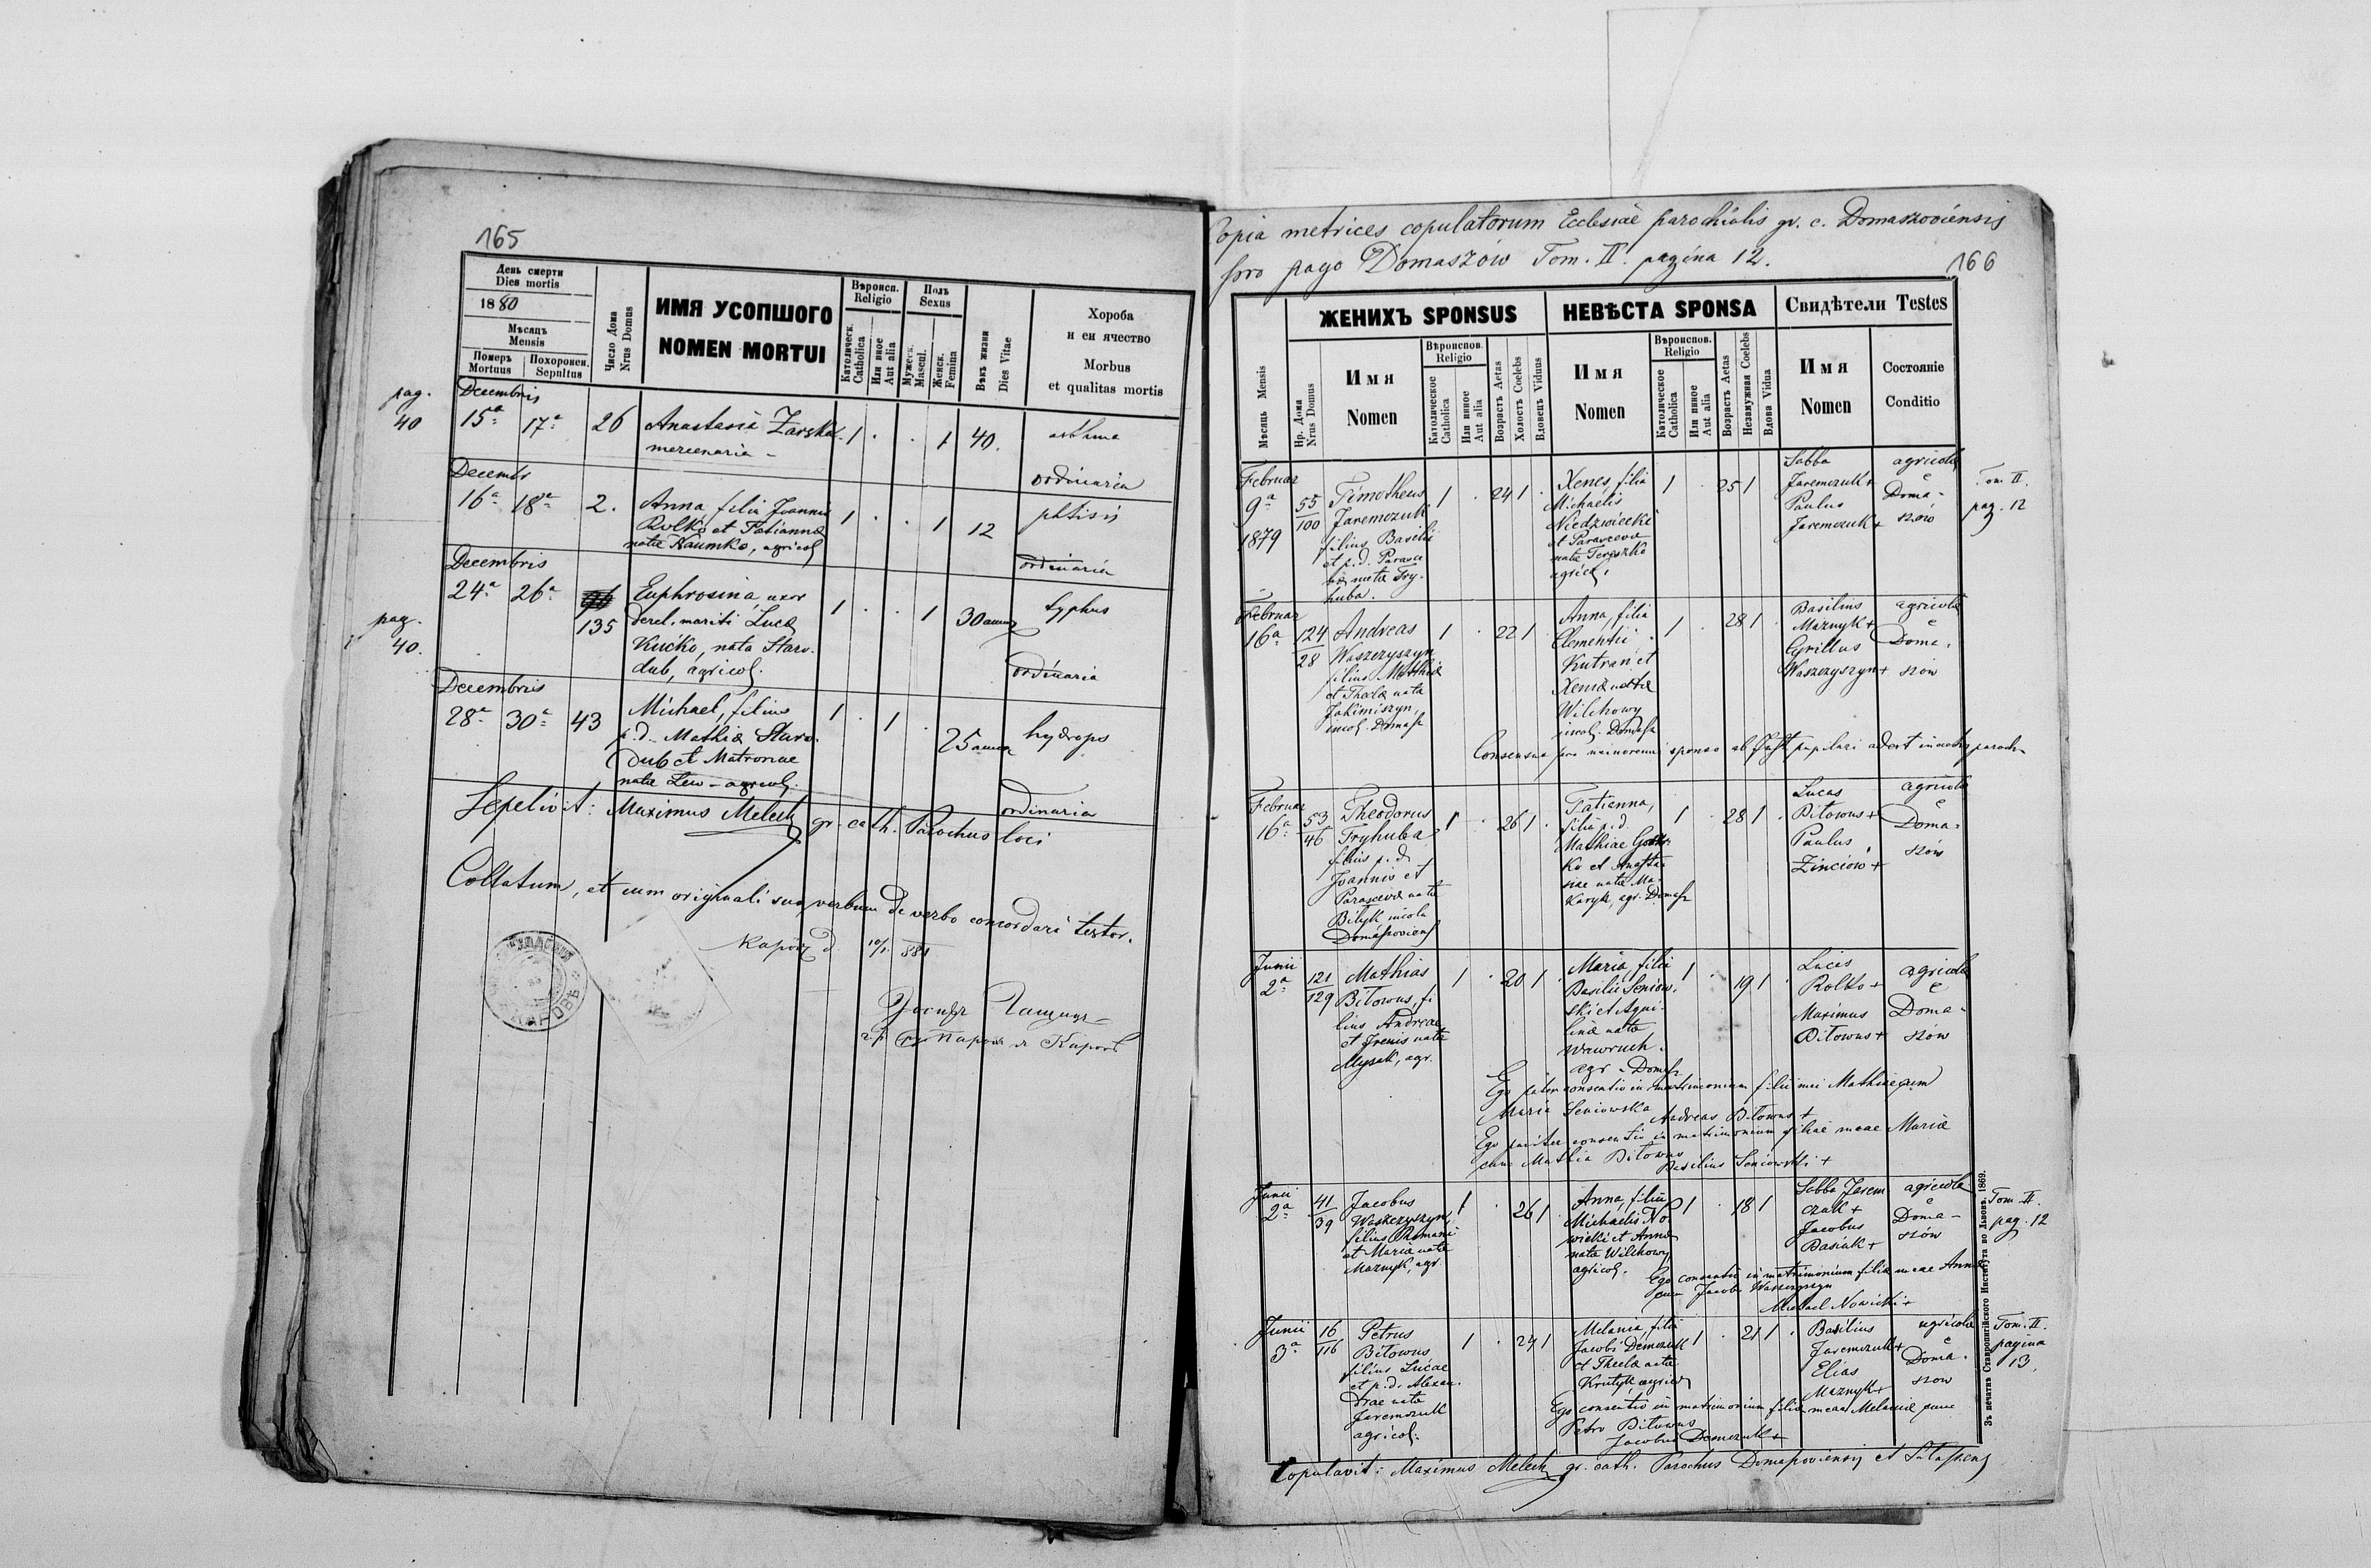 165
День смерти
Dies mortis
1880
Мѣсяцъ
Mensis
Померъ
Mortuus
Похоронен.
Sepultus
Число Дома
Nrus Domus
ИМЯ УСОПШОГО
NOMEN MORTUI
Вѣроисп.
Religio
Католическ.
Catholica
Или иное
Aut alia
Полъ
Sexus
Мужеск.
Mascul.
Женск.
Femina
Вѣкъ жизни
Dies Vitae
Хороба
и еи ячество
Morbus
et qualitas mortis
pag.
40
Decembris
15ª 17ª 26 Anastasia Zarska 1 . . 1 40. asthma
mercenaria -
ordinaria
Decembr
16ª 18ª 2. Anna, filia Joannis 1 . . 1 12 phtisis
Rolko et Tatianna
nata Naumko, agricol
ordinaria
Decembris
24ª 26ª 135 Euphrosina, uxor 1 . . 1 30 annor typhus
derel. mariti Luca
Kućko, nata Staro-
dub, agricol.
ordinaria
pag.
40.
Decembris
28ª 30ª 43 Michael, filius 1 . 1 . 25 annor hydrops
p.d. Mathia Staro-
dub et Matronae
nata Lew - agricol.
ordinaria
Sepelivit: Maximus Melech gr. cath. Parochus loci
Collatum, et cum originali suo verbum de verbo concordari testor.
Карôвъ д. 10/1 881
166
Copia metrices copulatorum Ecclesiae parochialis gr. c. Domaszoviensis
pro pago Domaszów Tom. II. pagina 12.
ЖЕНИХЪ SPONSUS
НЕВѢСТА SPONSA
Свидѣтели Testes
Мѣсяць Mensis
Нр. Дома
Nrus Domus
Имя
Nomen
Вѣроиспов.
Religio
Католическое
Catholica
Или иное
Aut alia
Возрастъ Aetas
Холостъ Coelebs
Вдовецъ Viduus
Имя
Nomen
Вѣроиспов.
Religio
Католическое
Catholica
Или иное
Aut alia
Возрастъ Aetas
Незамужная Coelebs
Вдова Vidua
Имя
Nomen
Состояніе
Conditio
Februar
9ª
1879
55
100
Timotheus
Jaremczuk
filius Basilii
et p.d. Parasce
va nata Try-
huba.
1 . 24 1 .
Xenes, filia
Michaelis
Niedzwiecki
et Parasceva
nata Tereszko
agricol.
1 . 25 1
Sabba
Jaremczuk+
Paulus
Jaremczuk+
agricola
e
Doma-
szów
Tom II.
pag. 12
Februar
16ª
124
28
Andreas
Waszczyszyn
filius Mathia
et Thecla nata
Jakimiszyn,
incol. Domasz
1 . 22 1
Anna, filia
Clementii
Kutran et
Xenia nata
Wilchowy
incol. Domasz
1 . 28 1
Basilius
Maznyk+
Cyrillus
Waszczyszyn+
agricola
e
Doma-
szów
Consensus pro minorenni sponso ab pupilari adest in actis paroch.
Februar
16ª
53
46
Theodorus
Tryhuba
filius p.d.
Joannis et
Parasceva nata
Bilyk incola
Domaszoviens
1 . 26 1 .
Tatianna,
filia p.d.
Mathiae
ko et Anasta-
siae nata Ma-
karyk, agr. Domasz
1 . 28 1 .
Lucas
Bitowus+
Paulus
Zinciow+
agricola
e
Doma-
szów
Junii
2ª
121
129
Mathias
Bitowus, fi
lius Andreae
et Irenis nata
Mysak, agr.
1 . 20 1 .
Maria, filia
Basilii Seniow-
ski et Aqui-
lina nata
Wawruch.
agr - Domasz
1 . 19 1 .
Lucas
Rolko+
Maximus
Bitowus+
agricola
e
Doma-
szów
Ego pater consentio in matrimonium filii mei Mathiae cum
Maria Seniowska Andreas Bitowus+
Ego pariter consentio in matrimonium filiae meae Maria
cum Mathia Bitowus
Basilius Seniowski+
Junii
2ª
41
39
Jacobus
Waszczyszyn,
filius Romani
et Maria nata
Maznyk, agr.
1 . 26 1
Anna, filia
Michaelis No-
wicki et Anna
nata Wilchowy
agricol.
1 . 18 1
Sabba Jarem
czuk+
Jacobus
Basiuk+
agricola
e
Doma-
szów
Tom. II.
pag. 12
Ego consentio in matrimonium filia meae Anna
cum Jacobi Waszczyszyn
Michael Nowicki+
Junii
3ª
16
116
Petrus
Bitowus
filius Lucae
et p.d. Alexan-
drae nata
Jaremczuk
agricol.
1 . 24 1
Melania, filia
Jacobi Demczuk
et Thecla nata
Krutyk agricol
1 . 21 1 .
Basilius
Jaremczuk+
Elias
Maznyk+
agricola
e
Doma-
szow
Tom. II.
pagina
13.
Ego consentio in matrimonium filia meae Melania cum
Petro Bitowus
Jacobus Demczuk+
Copulavit: Maximus Melech gr. cath. Parochus Domaszoviensis et
Зъ печатнѣ Ставропигійского Института во Львовѣ. 1869.